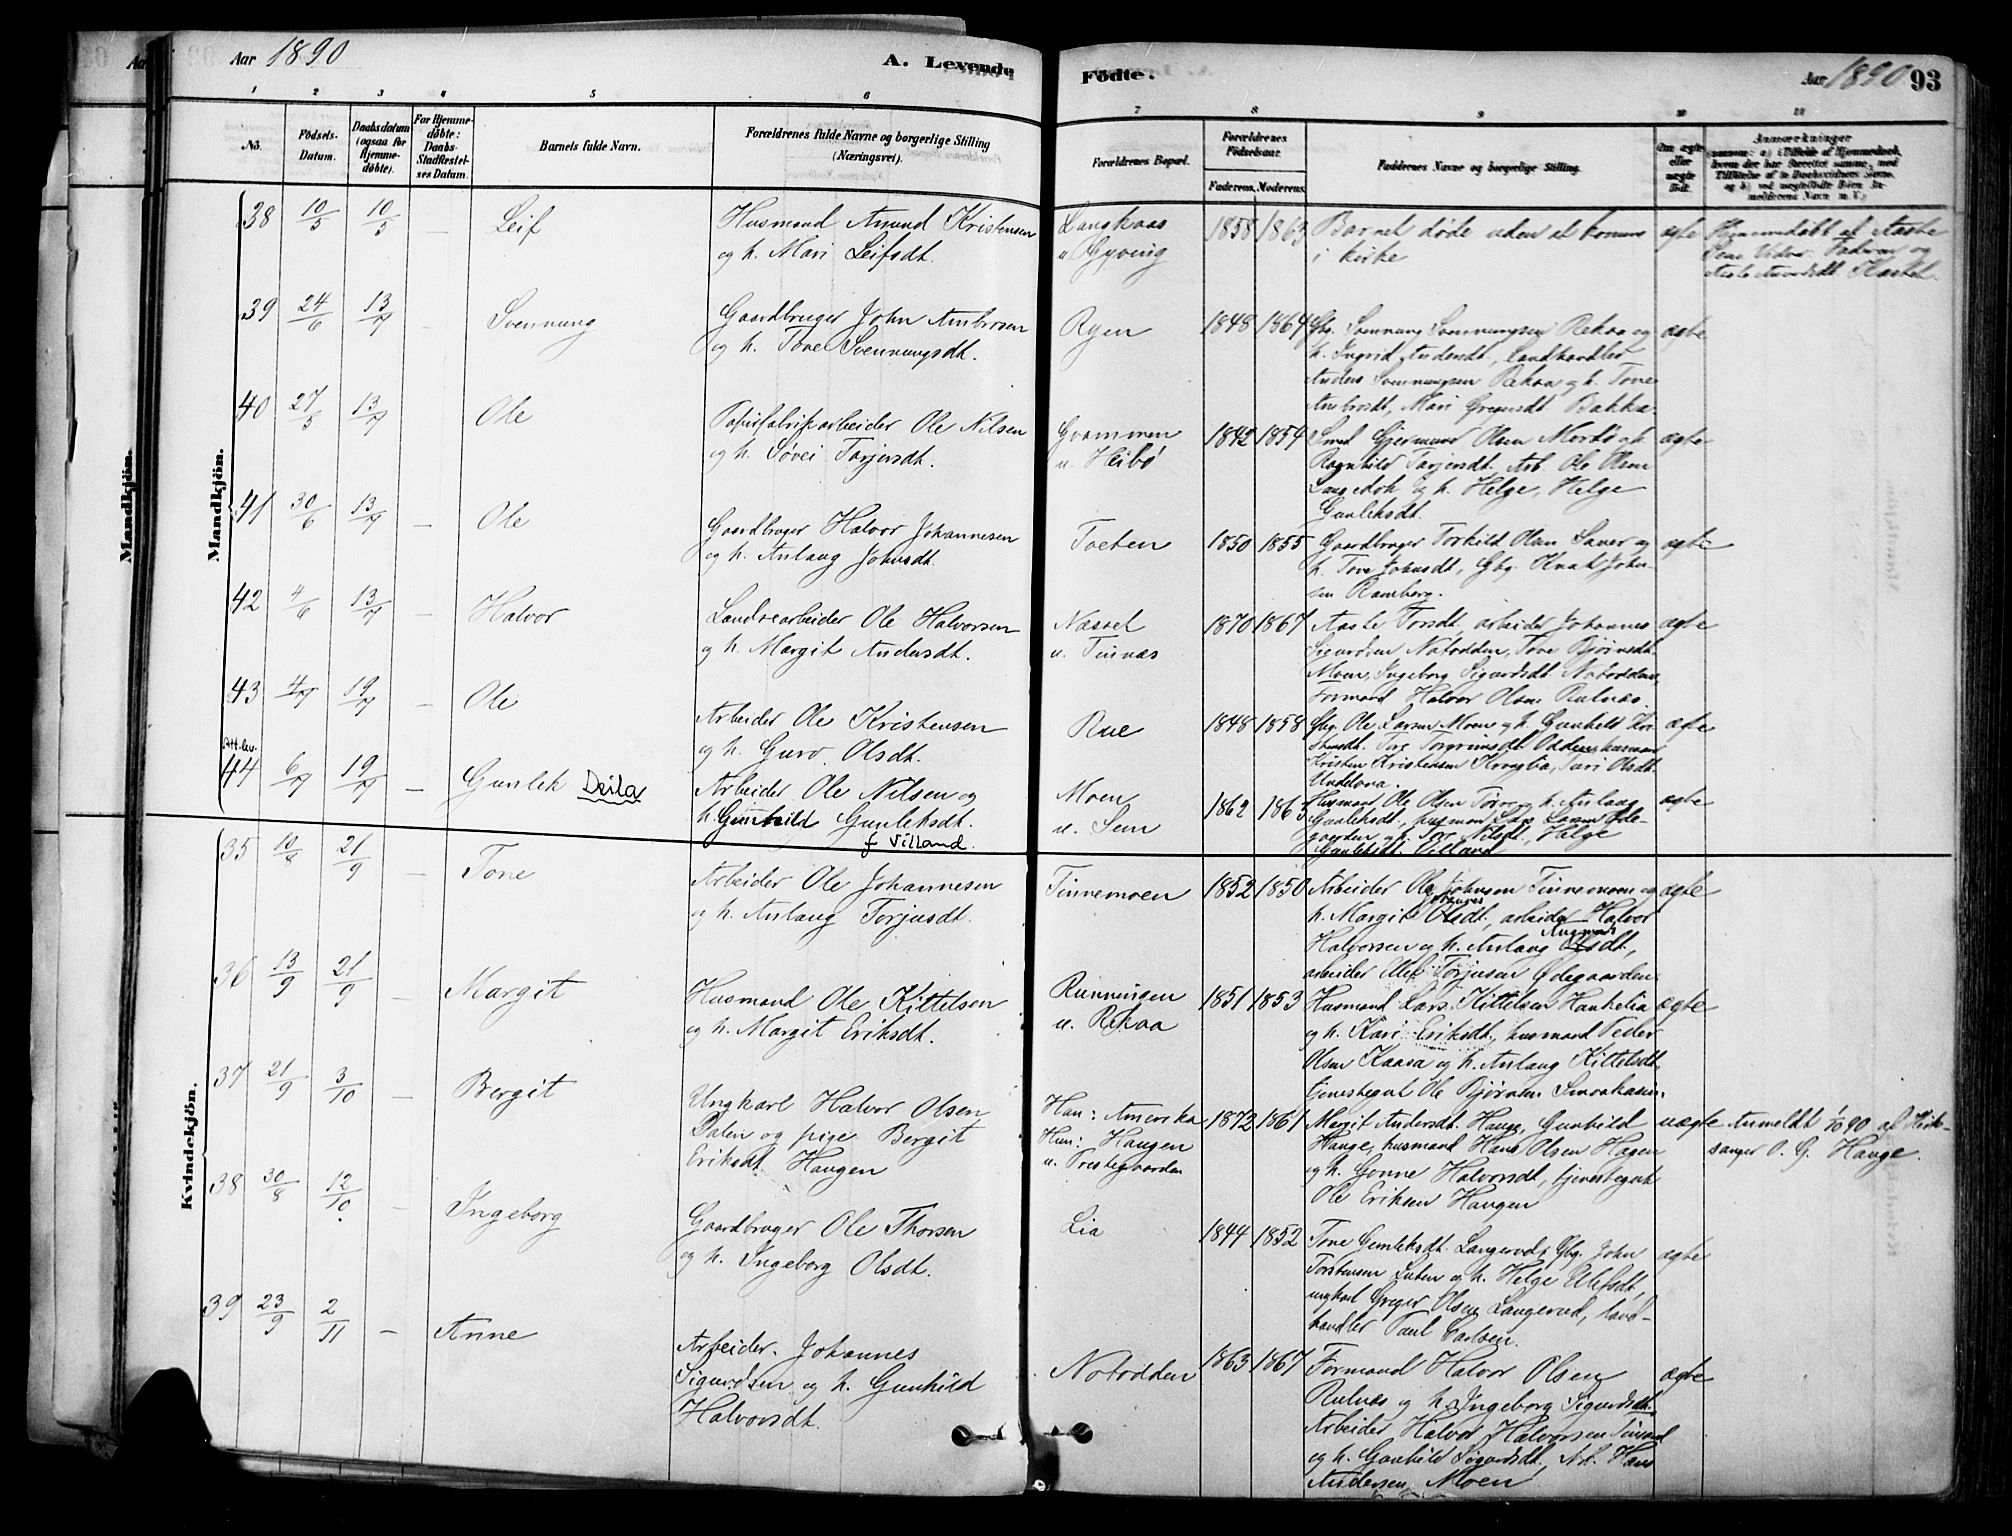 Aar 1890
A. Levende
Fødte.
Aar 1890 93
1 2 3 4 5 6 7 8 9 10 11
No.
Fødsels-
Datum.
Daabsdatum
(ogsaa for
Hjemme-
døbte).
For Hjemme-
døbte:
Daabs-
Stadfæstel-
ses Datum.
Barnets fulde Navn.
Forældrenes fulde Navne og borgerlige Stilling
(Næringsvei).
Forældrenes Bopæl.
Forældrenes
Fødselsaar.
Faderens. Moderens.
Faddernes Navne og borgerlige Stilling.
Om ægte
eller
uægte
født.
Anmærkninger
Mandkjøn.
Mandkjøn.
38 10/5 10/5 – Leif
Husmand Amund Kristensen
og h. Mari Leifsdt.
Langkaas
u. Gyving
1858 1863
Barnet døde uden at komme
i kirke
ægte
Hjemmedøbt af Aaste
39 24/6 13/7 – Svennung
Gaardbruger John Ambrosen
og h. Tone Svennungsdt.
Ryen
1848 1864
Gbr. Svennung Svennungsen Rekaa og
h. Ingrid Andersdt., Landhandler
Anders Svennungsen Bakka og h. Tone
Ambrosdt, Mari Gregusdt Bakka.
ægte
40 27/5 13/7 Ole
Papirfabrikarbeider Ole Nilsen
og h. Søvei Torjersdt.
Grammen
u. Heibø
1842 1854
Smed Gjermund Olsen
Ragnhild Tarjersdt, Arb. Ole Olsen
og h. Helge, Helge
Gunleksdt.
ægte
41 30/6 13/7 – Ole
Gaardbruger Halvor Johannesen
og h. Anlaug Johnsdt.
Toeten
1850 1855
Gaardbruger Torkild Olsen Saner og
h. Tone Johnsdt, Gbg. Knut John-
sen Ramberg.
ægte
42 4/6 13/7 – Halvor
Landvearbeider Ole Halvorsen
og h. Margit Andersdt.
Næsset
u. Tinnæs
1870 1867
Aaste Torsdt, arbeider Johannes
Sigurdsen Notodden, Tone Bjørnsdt.
Moen, Ingeborg Sigurdsdt Notodden,
Formand Halvor Olsen Rulnæs.
ægte
43 4/7 19/7 – Ole
Arbeider Ole Kristensen
og h. Guro Olsdt.
Rue
1848 1858
Gbg. Ole Larsen Moen og h. Gunhild
Kristen Kristensen Kroglia, Turi Olsdt.
ægte
Att. lev.
44 6/7 19/7 – Gunlek Deila
Arbeider Ole Nilsen og
h. Gunhild Gunleksdt.
f Villand
Moen
u. Sem
1862 1863
Husmand Ole Olsen og h. Anlaug
Gunleksdt., husman Lars Larsen Øde-
gaarden og h. Tone Nilsdt, Helge
Gunleksdt. Villand
ægte
Kvindekjøn.
35 10/8 21/9 – Tone
Arbeider Ole Johannesen
og h. Anlaug Torjusdt.
Tinnemoen
1852 1850
Arbeider Ole Johnsen Tinnemoen og
h. Margit Olsdt, arbeider Halvor
Halvorsen og h. Anlaug Aasmunds
arbeider Olef Torjusen Ødegaarden.
ægte
36 13/9 21/9 – Margit
Husmand Ole Kittelsen
og h. Margit Eriksdt.
Runningen
u. Rekaa
1851 1853
Husmand Lars Kittelsen Haukelia
og h. Kari Eriksdt., husmand Peder
Olsen Kaasa og h. Anlaug Kittelsdt.,
tjenestegut Ole Bjørnsen
ægte
37 21/9 3/10 – Bergit
Ungkarl Halvor Olsen
Dalen og pige Bergit
Eriksdt. Haugen
Han: Amerika
Hun: Haugen
u. Prestegaarden
1872 1861
Margit Andersdt. Hauge, Gunhild
Hauge, husmand Hans Olsen Hagen
og h. Gonne Halvorsdt, tjenestegut
Ole Eriksen Haugen
uægte
Anmeldt 1/10 90 af Kirke-
sanger O. G. Hauge.
38 30/8 12/10 – Ingeborg
Gaardbruger Ole Thorsen
og h. Ingeborg Olsdt.
Lia
1844 1852
Tone Gunleksdt. Langerud, Gbg. John
Torstensen Luten og h. Helge Olefsdt,
ungkarl Greger Olsen Langerud, land-
handler Paul Carlsen.
ægte
39 23/9 2/11 – Anne
Arbeider Johannes
Sigurdsen og h. Gunhild
Halvorsdt.
Notodden
1863 1867
Formand Halvor Olsen
Rulnæs og h. Ingeborg Sigurdsdt.
Arbeider Halvor Halvorsen Tinnæs
og h. Gunhild Sigurdsdt, Arb. Hans
Andersen Moen
ægte